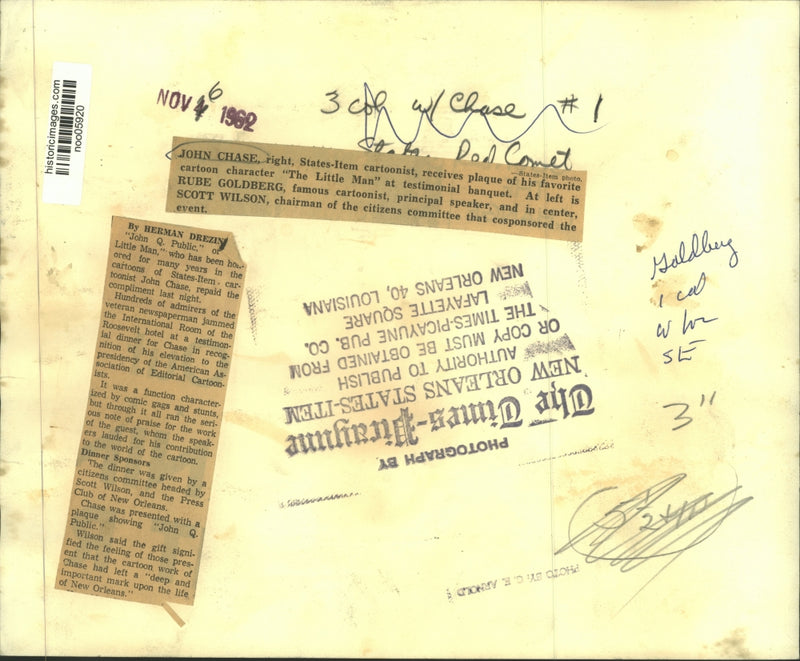 historicimages.com
noo05920
NOV 6 1962
3 col w/ Chase #1
State Red Comet
—States-Item photo.
JOHN CHASE, right, States-Item cartoonist, receives plaque of his favorite
cartoon character "The Little Man" at testimonial banquet. At left is
RUBE GOLDBERG, famous cartoonist, principal speaker, and in center,
SCOTT WILSON, chairman of the citizens committee that cosponsored the
event.
By HERMAN DREZIN
"John Q. Public," or
Little Man," who has been hon-
ored for many years in the
cartoons of States-Item car-
toonist John Chase, repaid the
compliment last night.
Hundreds of admirers of the
veteran newspaperman jammed
the International Room of the
Roosevelt hotel at a testimon-
ial dinner for Chase in recog-
nition of his elevation to the
presidency of the American As-
sociation of Editorial Cartoon-
ists.
It was a function character-
ized by comic gags and stunts,
but through it all ran the seri-
ous note of praise for the work
of the guest, whom the speak-
ers lauded for his contribution
to the world of the cartoon.
Dinner Sponsors
The dinner was given by a
citizens committee headed by
Scott Wilson, and the Press
Club of New Orleans.
Chase was presented with a
plaque showing "John Q.
Public."
Wilson said the gift signi-
fied the feeling of those pres-
ent that the cartoon work of
Chase had left a "deep and
important mark upon the life
of New Orleans."
PHOTOGRAPH BY
The Times-Picayune
NEW ORLEANS STATES-ITEM
AUTHORITY TO PUBLISH
OR COPY MUST BE OBTAINED FROM
THE TIMES-PICAYUNE PUB. CO.
LAFAYETTE SQUARE
NEW ORLEANS 40, LOUISIANA
Goldberg
1 col
SE
3"
PHOTO BY: C. E. ARNOLD